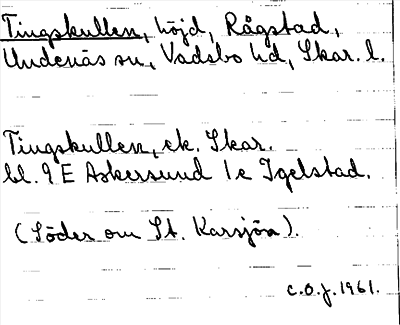 Tingskullen, höjd, Rågstad,
Undenäs sn, Vadsbo hd, Skar. l.
Tingskullen, ek. Skar.
bl. 9 E Askersund 1 e Igelstad.
(Söder om St. Karsjön).
C.O.J. 1961.